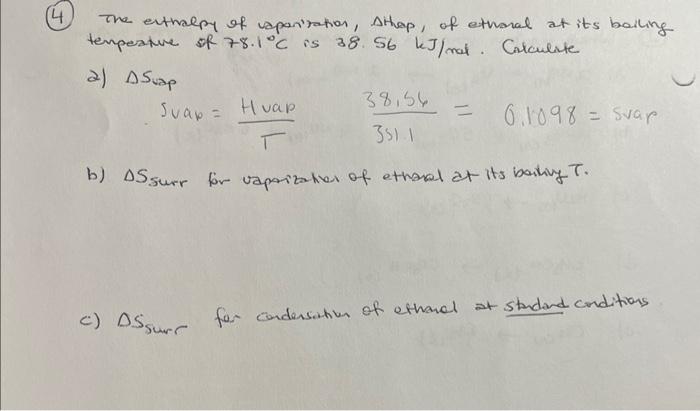 4 The enthalpy of vaporization, ΔHvap, of ethanol at its boiling
temperature of 78.1°C is 38.56 kJ/mol. Calculate
a) ΔSvap
Svap = Hvap / T 38.56 / 351.1 = 0.1098 = Svap
b) ΔSsurr for vaporization of ethanol at its boiling T.
c) ΔSsurr for condensation of ethanol at standard conditions